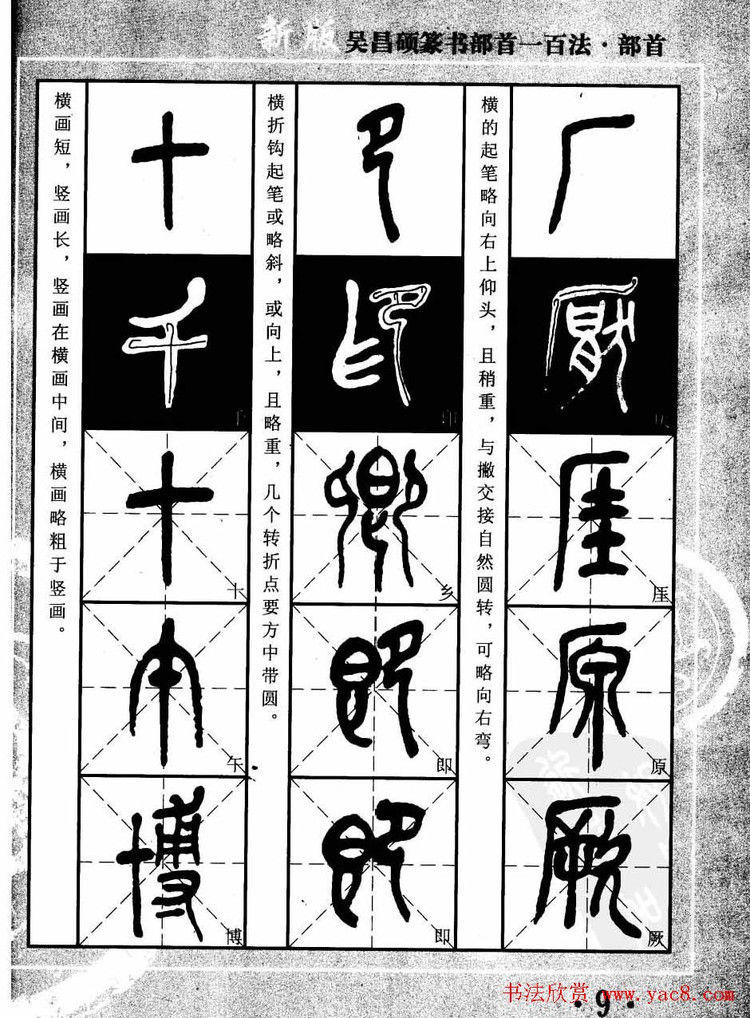 新版 吴昌硕篆书部首一百法·部首
厂
横的起笔略向右上仰头，且稍重，与撇交接自然圆转，可略向右弯。
厓
原
厥
横折钩起笔或略斜，或向上，且略重，几个转折点要方中带圆。
印
乡
即
即
横画短，竖画长，竖画在横画中间，横画略粗于竖画。
十
千
十
午
博
书法欣赏 www.yac8.com
·9·